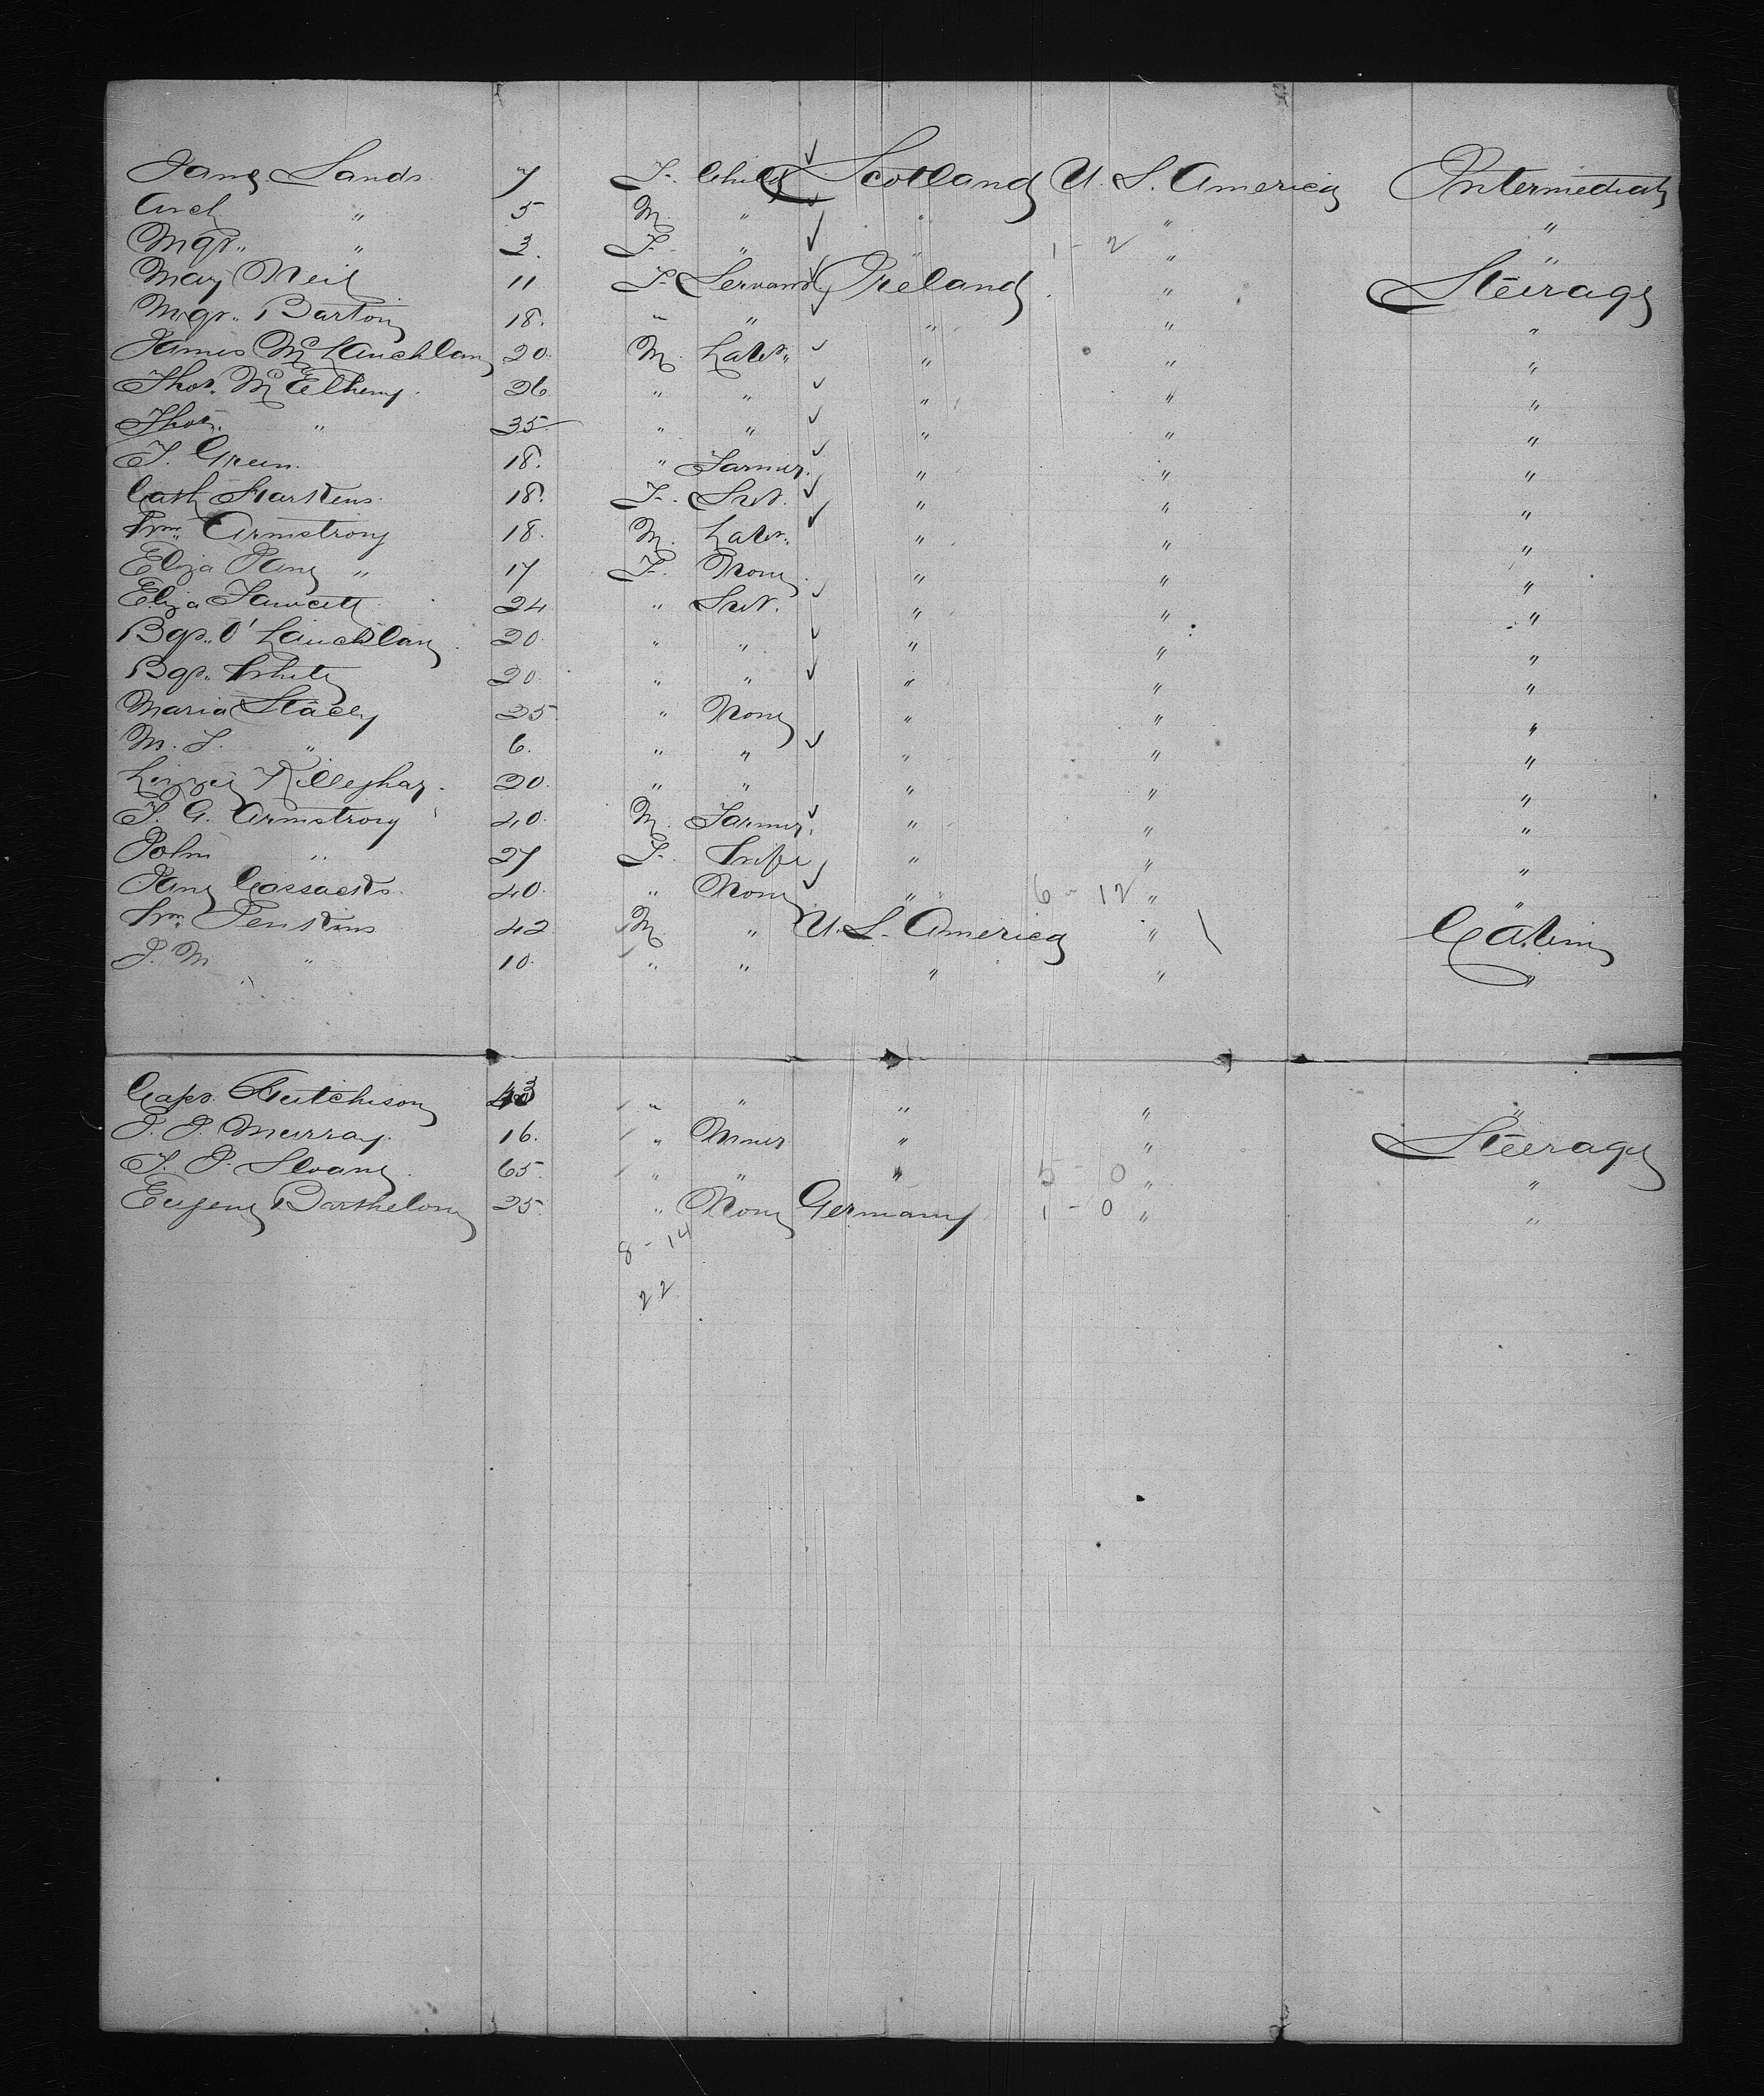 Jane Sands 7 F. Child Scotland U. S. America Intermediate
Arch " 5 M. " " " "
Mgt. " 3. F. " 1 - 2 " "
Mary Neil 11 F. Servant Ireland " Steerage
Mgt. Barton 18. " " " " "
James McLauchlan 20. M. Labr. " " "
Thos. McElheny. 26. " " " " "
Thos. " 35. " " " " "
T. Green. 18. " Farmer. " " "
Cath Harkens. 18. F. Svt. " " "
Wm. Armstrong 18. M. Labr. " " "
Eliza Jane " 17 F. None. " " "
Eliza Fawcett 24 " Svt. " " "
Bgt. O'Lauchlan. 20. " " " " "
Bgt. White 20. " " " " "
Maria Stacey 25. " None " " "
M. S. " 6. " " " " "
Lizzie Killeghar. 20. " " " " "
T. G. Armstrong 40. M. Farmer. " " "
John " 27 F. Wife " " "
Jane Cassacks. 40. " None " 6 - 12 " "
Wm. Jenkins 42 M. " U. S. America " \ Cabin
J. M " 10. " " " " "
Capt. Hutchison 43 " " " " "
J. J. Murray. 16. " Miner " " Steerage
T. J. Sloane. 65. " " " 5 - 0 " "
Eugene Barthelone 25. " None Germany 1 - 0 " "
8 - 14
22